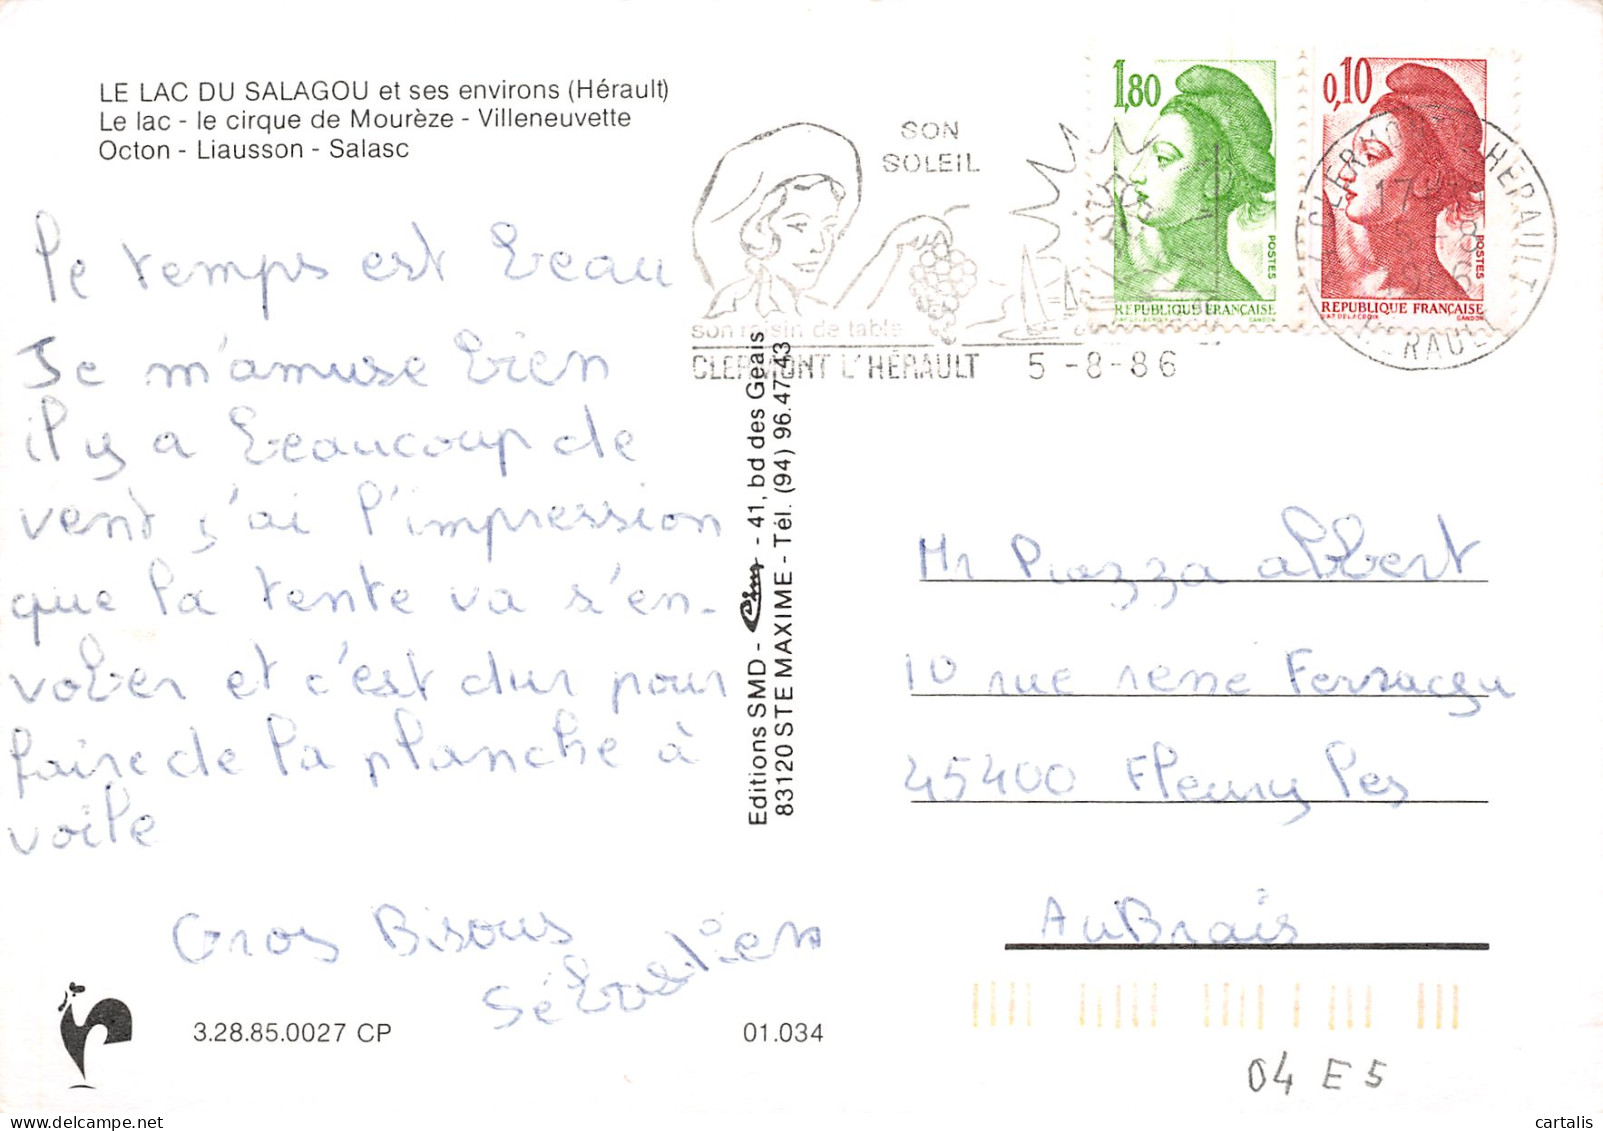 LE LAC DU SALAGOU et ses environs (Hérault)
Le lac - le cirque de Mourèze - Villeneuvette
Octon - Liausson - Salasc
Le temps est beau
Je m'amuse bien
il y a beaucoup de
vent j'ai l'impression
que la tente va s'en-
voler et c'est dur pour
faire de la planche à
voile
Gros Bisous
Sébastien
3.28.85.0027 CP
01.034
Editions SMD - - 41, bd des Geais
83120 STE MAXIME - Tél. (94) 96.47.43
SON
SOLEIL
son raisin de table
CLERMONT L'HÉRAULT 5 -8-86
1,80
POSTES
RÉPUBLIQUE FRANÇAISE
D'AP. DELACROIX GANDON
0,10
POSTES
RÉPUBLIQUE FRANÇAISE
D'AP. DELACROIX GANDON
CLERMONT L'HERAULT
17H
5-8
1986
HERAULT
Mr Piazza albert
10 rue rene Ferragu
45400 Fleury les
AuBrais
04 E 5
cartalis
www.delcampe.net